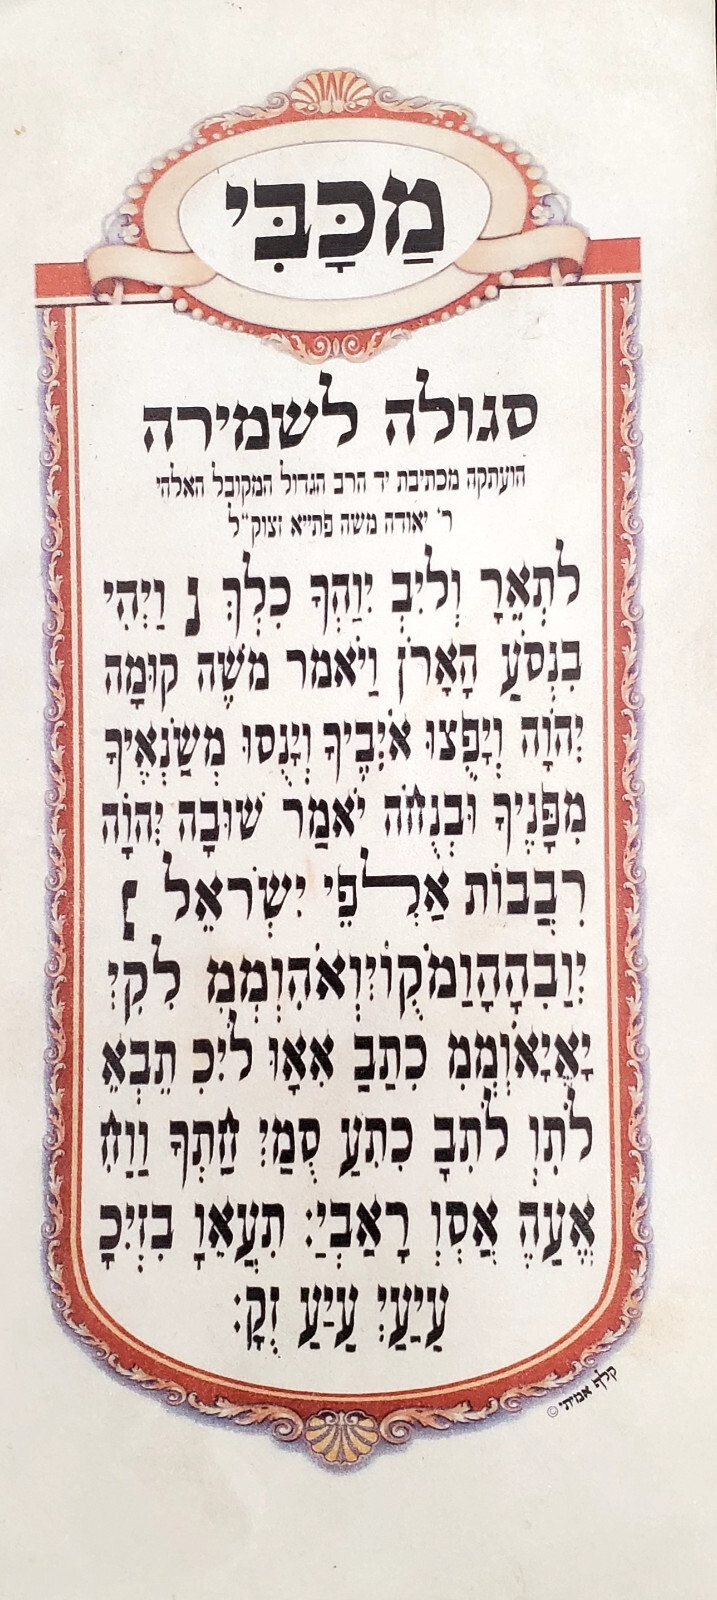 מַכָּבִּי
סגולה לשמירה
הועתקה מכתיבת יד הרב הגדול המקובל האלהי
ר׳ יאודה משה פתייא זצוק״ל
לִתְאֵרָ וְלִיבְ יִוַהְךָ כִלְךְ ׆ וַיְהִי
בִּנְסֹעַ הָאָרֹן וַיֹּאמר משֶׁה קוּמָה
יְהֹוָה וְיָפֻצוּ אֹיְבֶיךָ וְיָנֻסוּ מְשַׂנְאֶיךָ
מִפָּנֶיךָ וּבְנֻחֹה יֹאמַר שׁוּבָה יְהוָֹה
רִבֲבוֹת אַלְפֵי יִשְׂרָאֵל ׆
יְוַבִהָהָוַמֹקֻוֹיִוְאֹהִוְמְמִ לִקִיְ
יָאֲיָאוְמְמִ כִתַבַ אִאָוּ לִיכִ תֵבְאֵ
לֹתִןְ לֹתִבָ כִתִעַ סֻמַיְ חַתְךָ וַוַחִ
אֱעַהֶ אֲסְוְ רָאַבְיַ: תִעֲאֵוָ בִזְיִכָ
עַיַעַיְ עַיַעַ זְקָ:
קלף אמיתי ©